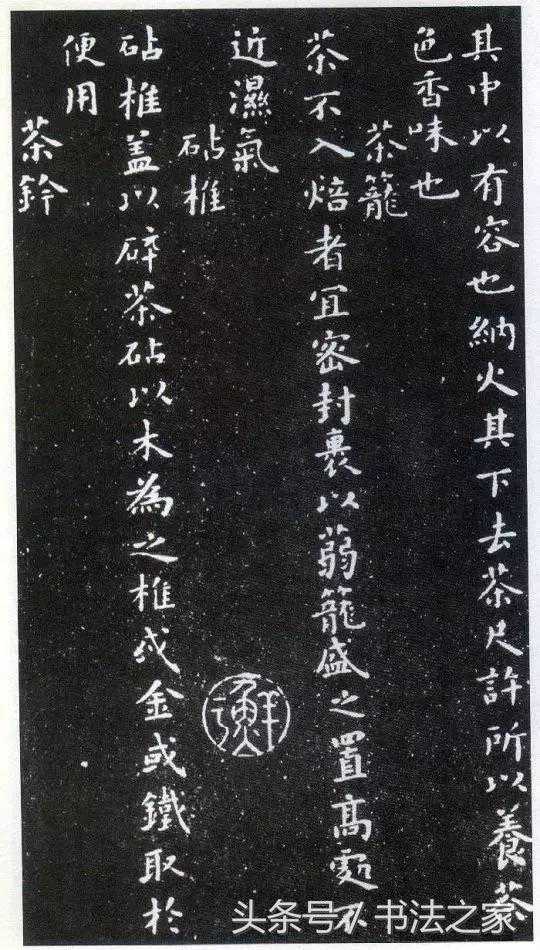 其中以有容也納火其下去茶尺許所以養茶
色香味也
茶籠
茶不入焙者宜密封裹以蒻籠盛之置高處不
近濕氣
砧椎
砧椎蓋以碎茶砧以木為之椎或金或鐵取於
便用
茶鈐
头条号 / 书法之家